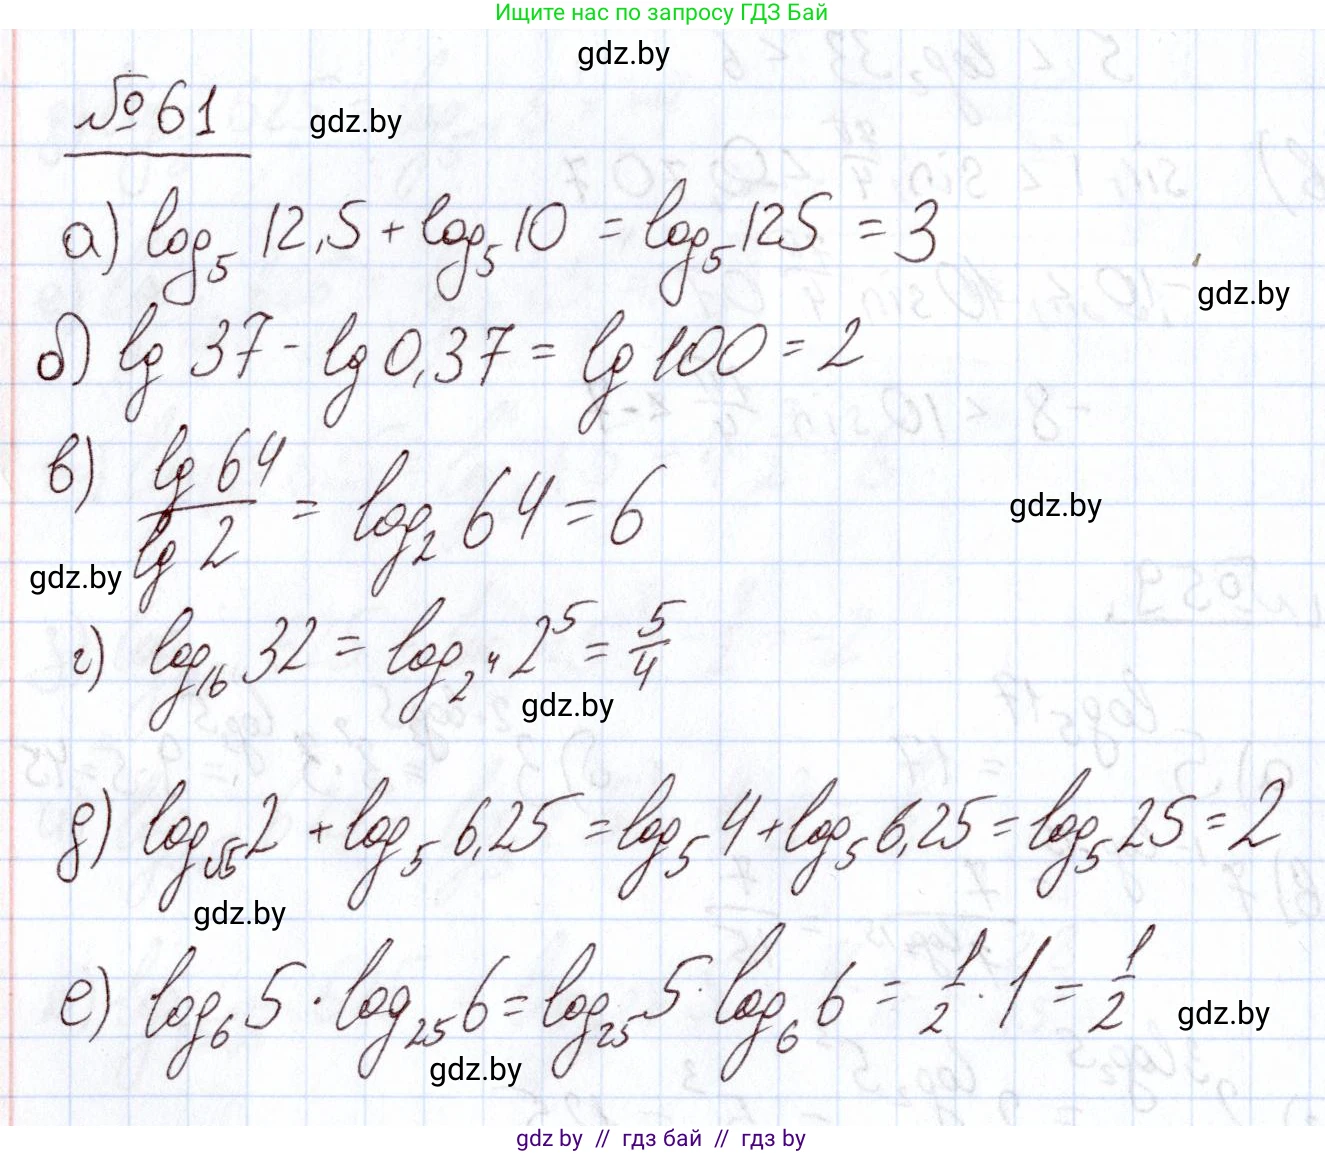 Ищите нас по запросу ГДЗ Бай
gdz.by
№ 61
gdz.by
а) log₅ 12,5 + log₅ 10 = log₅ 125 = 3
gdz.by
б) lg 37 - lg 0,37 = lg 100 = 2
в) lg 64 / lg 2 = log₂ 64 = 6
gdz.by
gdz.by
г) log₁₆ 32 = log_{2⁴} 2⁵ = 5/4
gdz.by
д) log_{√5} 2 + log₅ 6,25 = log₅ 4 + log₅ 6,25 = log₅ 25 = 2
gdz.by
е) log₆ 5 · log₂₅ 6 = log₂₅ 5 · log₆ 6 = 1/2 · 1 = 1/2
gdz.by
gdz.by
gdz by // гдз бай // гдз by